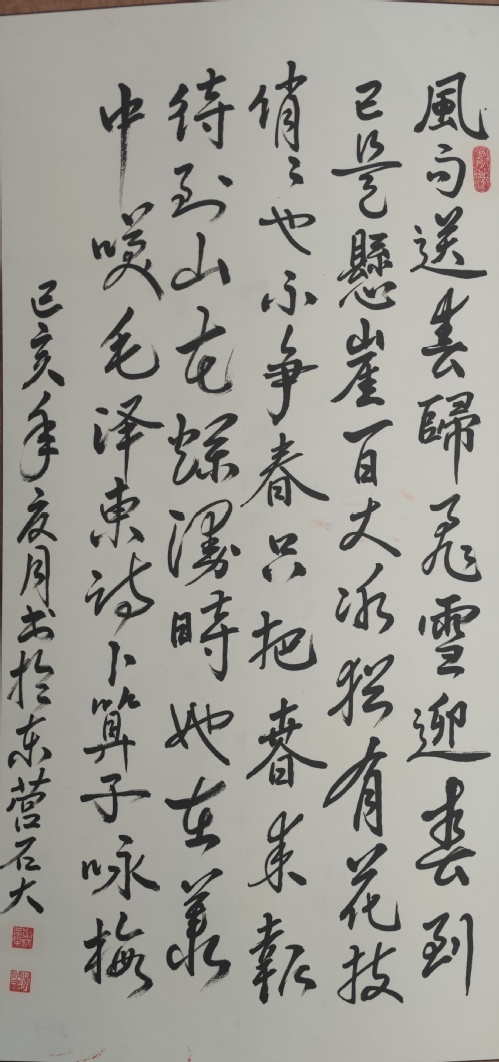 風雨送春歸飛雪迎春到
已是懸崖百丈冰猶有花枝
俏〻也不争春只把春来報
待到山花爛漫時她在叢
中咲毛泽東诗卜算子咏梅
己亥年夏月书於东营石大